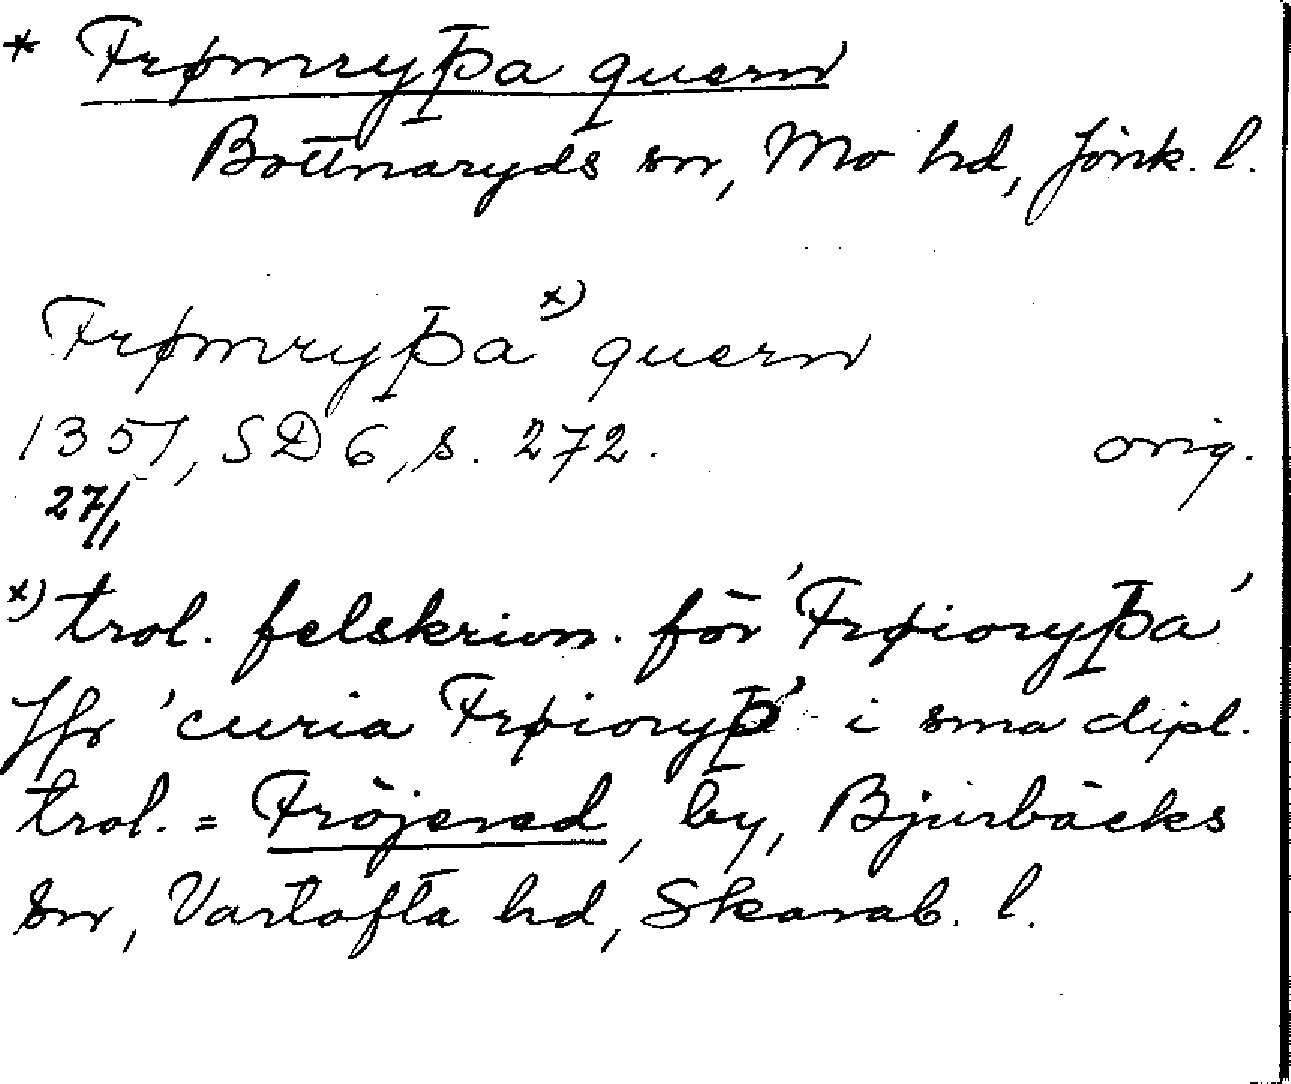 * Frømryþa quern
Bottnaryds sn, Mo hd, Jönk. l.
Frømryþa x) quern
1351, SD 6, s. 272. orig.
27/1
x) trol. felskrivn. för 'Frøioryþa'
Jfr 'curia Frøioryþ' i sma dipl.
trol. = Fröjered, by, Bjurbäcks
sn, Vartofta hd, Skarab. l.